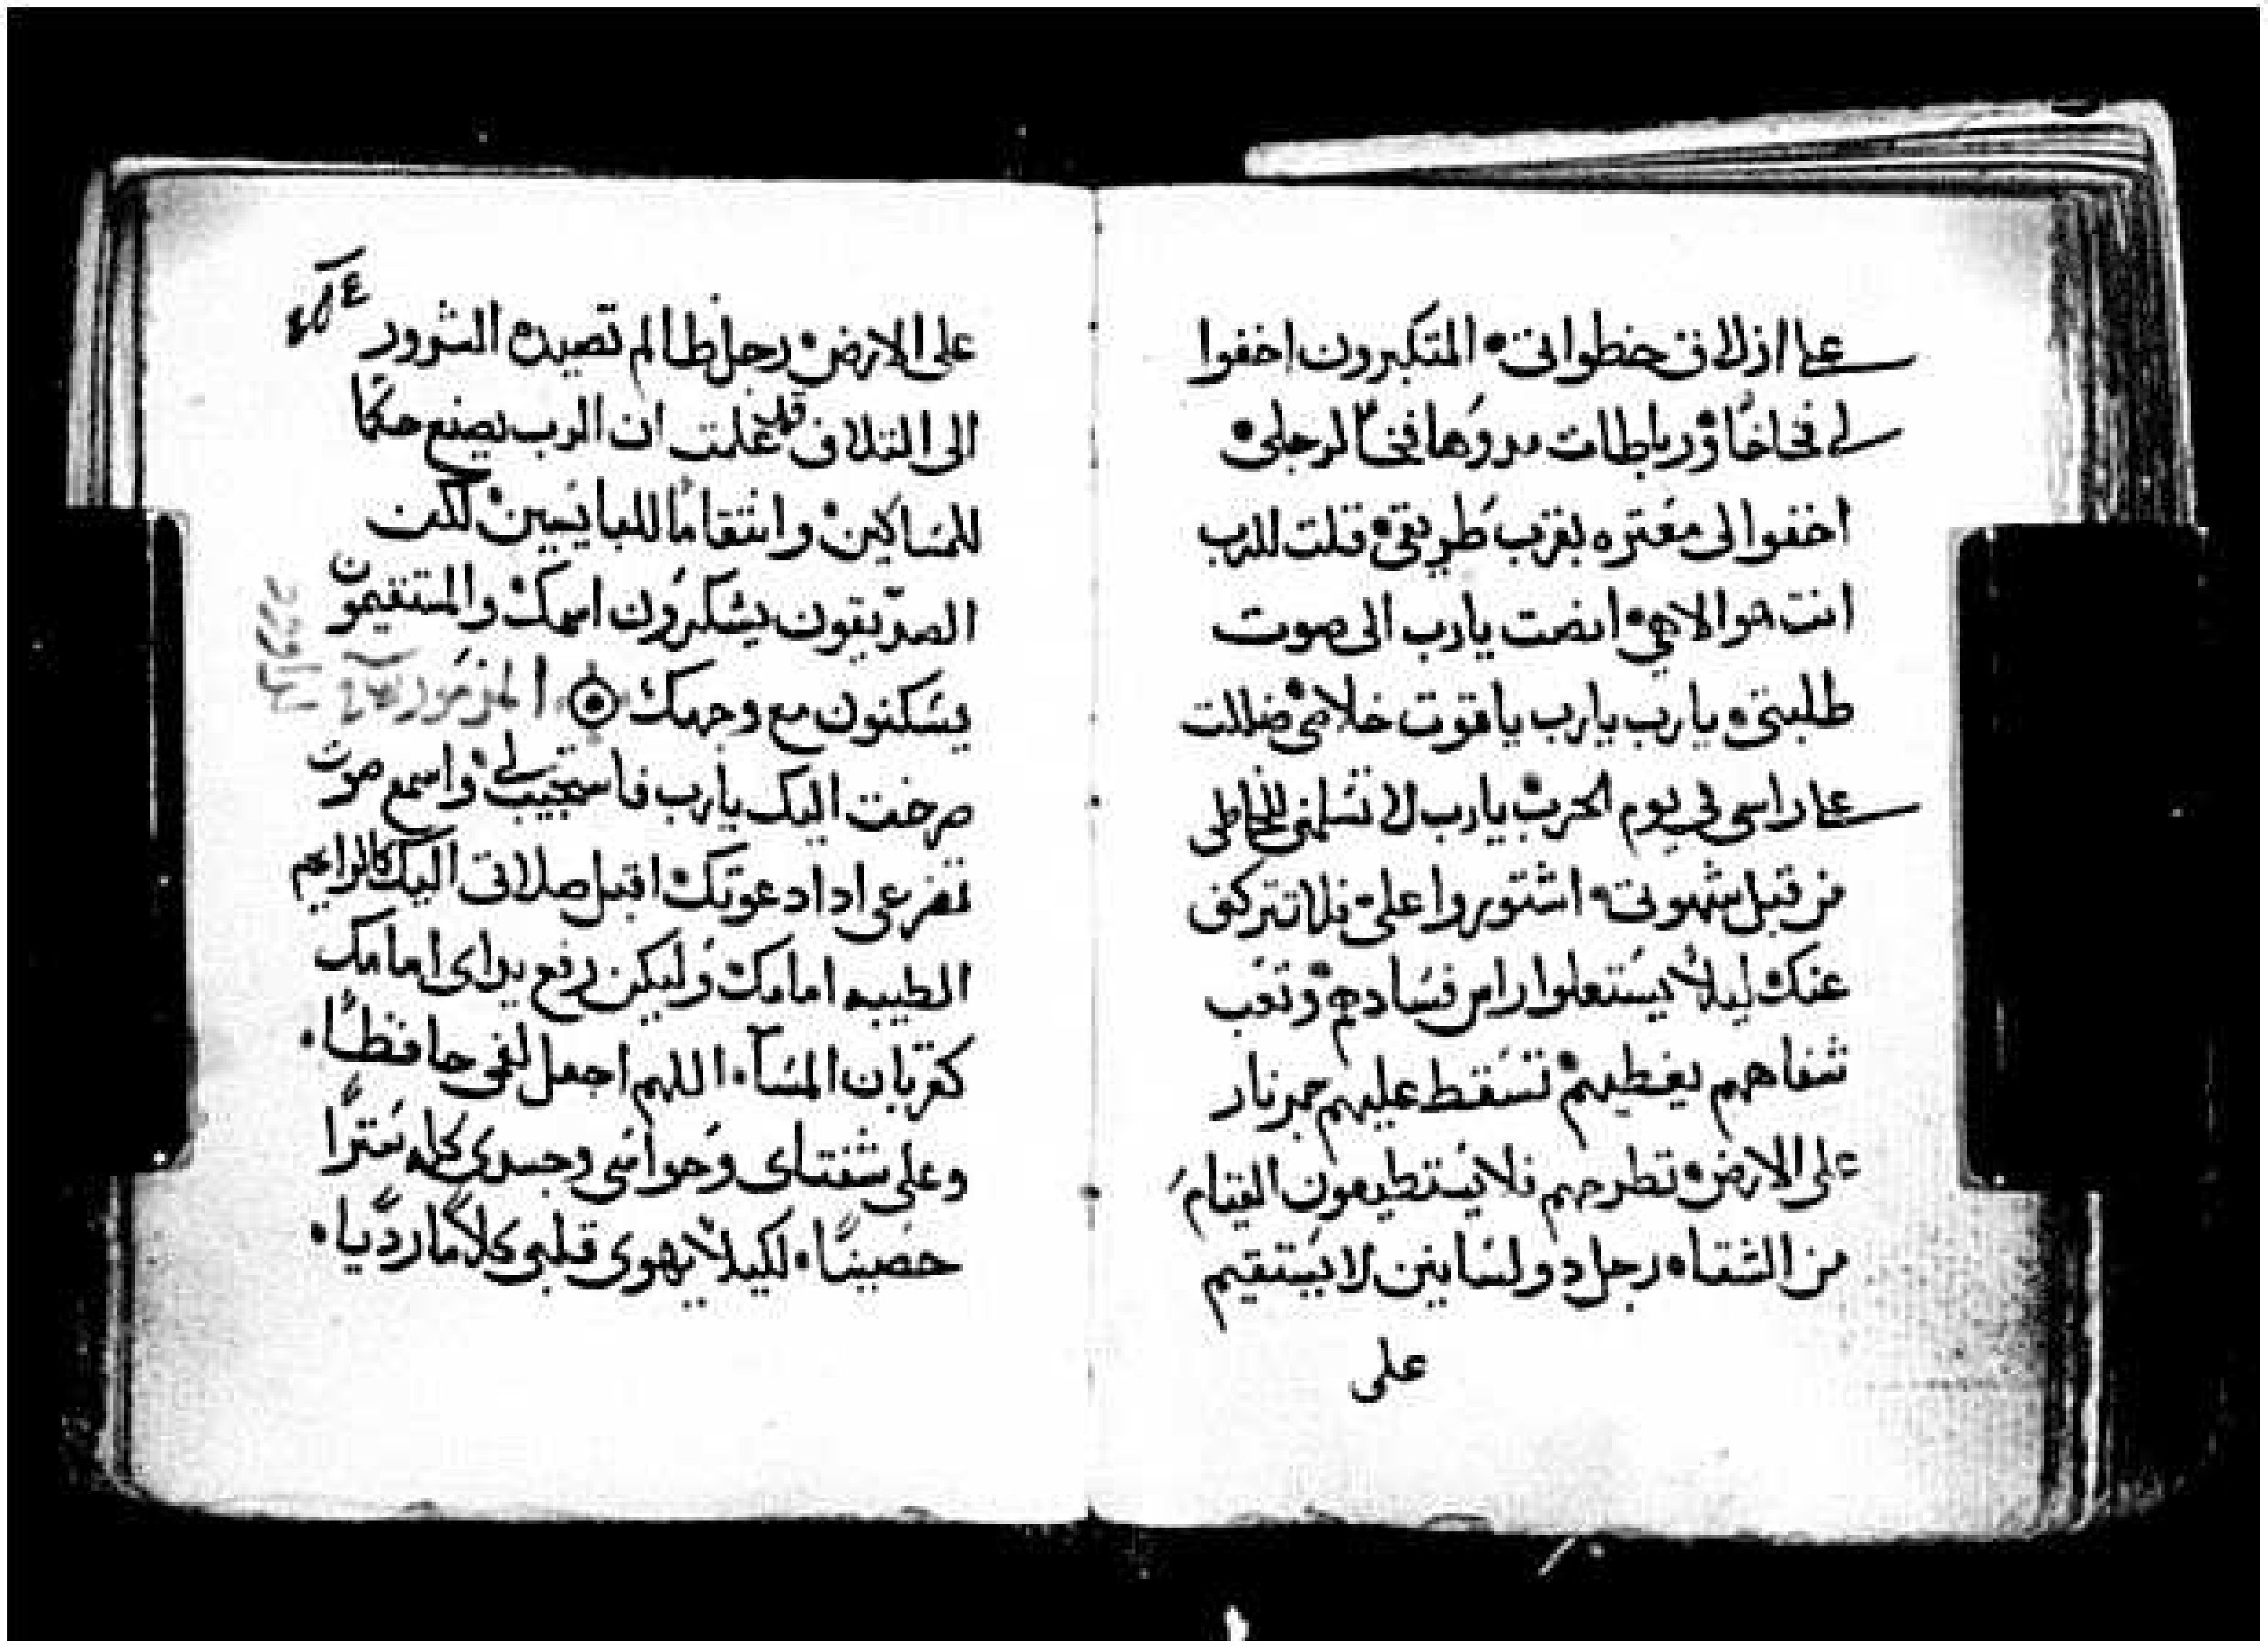 على ازلاق خطواتى • المتكبرون اخفوا
لى فخاخًا • ورباطات مدوها فخًا لرجلى •
اخفوا لى معثره بقرب طريقى • قلت للرب
انت هو الاهى • انصت يارب الى صوت
طلبتى • يارب يارب ياقوت خلاصى • ضللت
على راسى فى يوم الحرب • يارب لا تسلمنى للخاطى
من قبل شهوتى • اشتوروا على • فلا تتركنى
عنك ليلا يستعلوا • راس فسادهم • وتعب
شفاهم يغطيهم • تسقط عليهم جمر نار
على الارض • تطرحهم فلا يستطيعون القيام
من الشقاء رجل دو لسانين لا يستقيم
على
على الارض • رجل ظالم تصيده الشرور
الى التلاف • قد علمت ان الرب يصنع حكمًا
للمساكين • وانتقامًا للبايسين • لكن
الصديقون يشكرون اسمك • والمستقيمون
يسكنون مع وجهك المزمور
صرخت اليك يارب فاستجيب لى • واسمع صوت
تضرعى ادا دعوتك • اقبل صلاتى اليك كالرايحه
الطيبه امامك • وليكن رفع يداى امامك
كقربان المسآ • اللهم اجعل لفمى حافظًا •
وعلى شفتاى وحواسى وجسدى كله سترًا
حصينًا • لكيلا يهوى قلبى كلامًا رديًا •